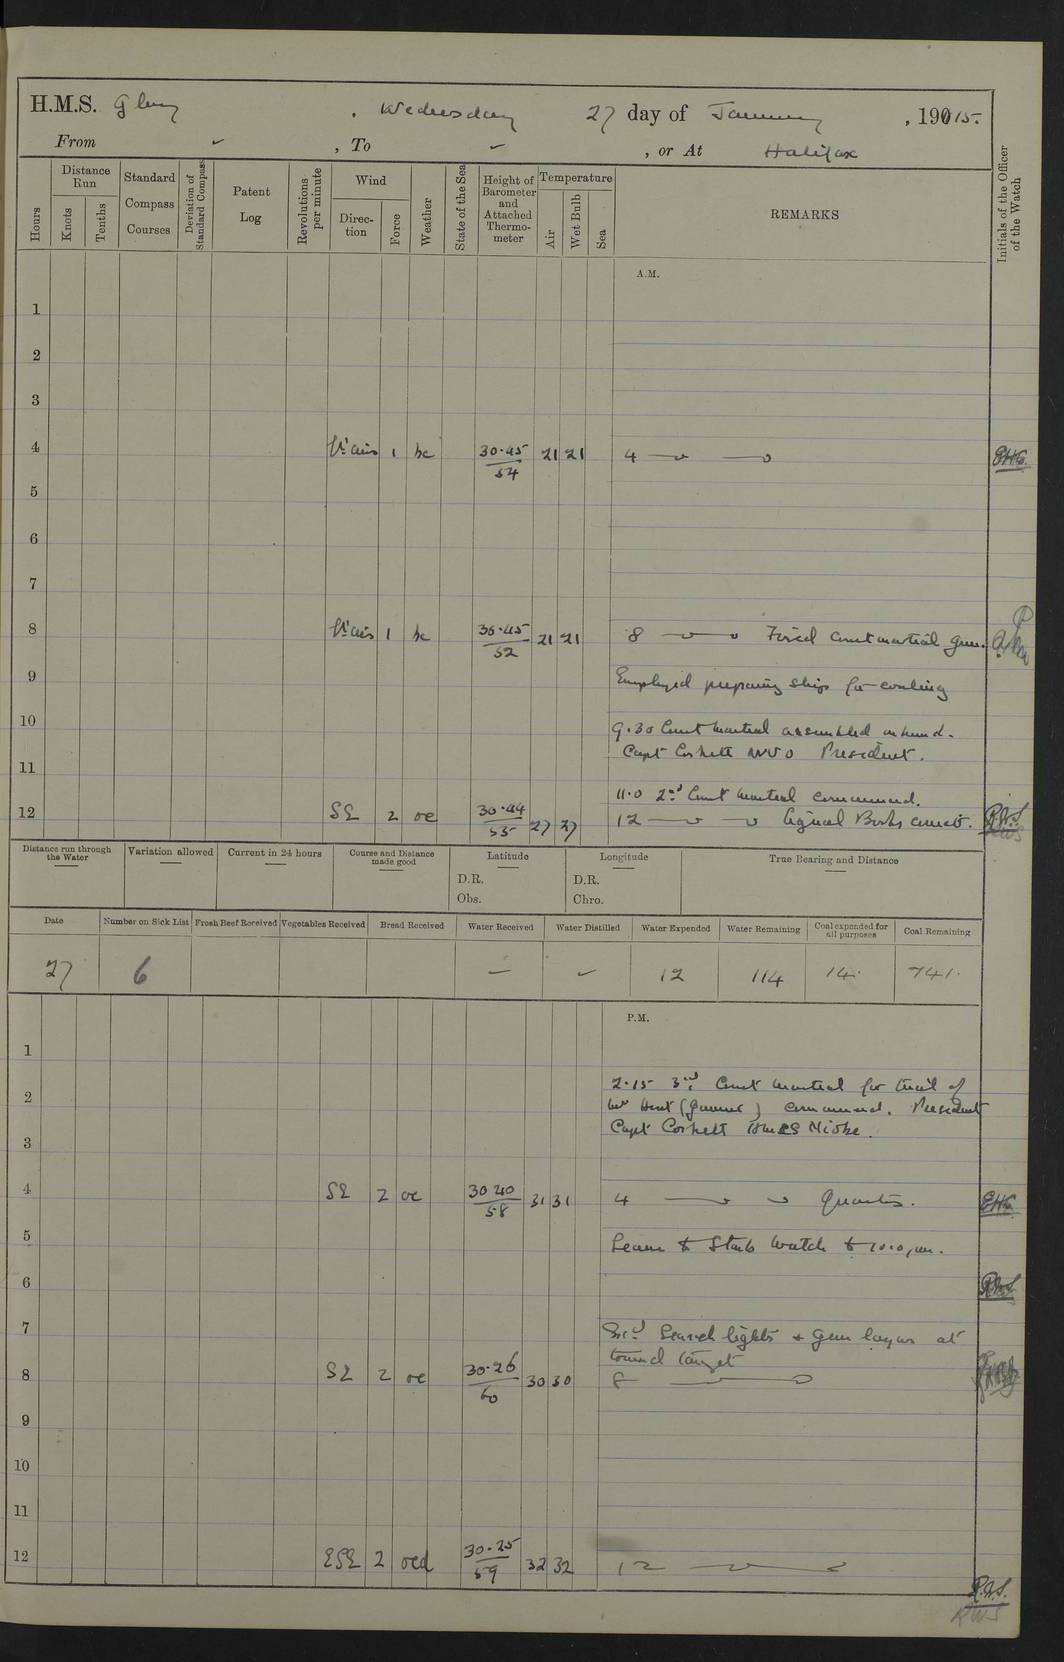 H.M.S. Glory, Wednesday 27 day of January, 1915.
From ✓, To ✓, or At Halifax
Hours
Distance Run
Knots
Tenths
Standard Compass Courses
Deviation of Standard Compass
Patent Log
Revolutions per minute
Wind
Direction
Force
Weather
State of the Sea
Height of Barometer and Attached Thermometer
Temperature
Air
Wet Bulb
Sea
REMARKS
Initials of the Officer of the Watch
A.M.
1
2
3
4 Lt airs 1 bc 30.45 / 54 21 21 4 EHG.
5
6
7
8 Lt airs 1 bc 30.45 / 52 21 21 8 Fired court martial gun.
9 Employed preparing ships for coaling
10 9.30 Court martial assembled on board.
Capt Corbett MVO President.
11
11.0 2nd Court Martial commenced.
12 SE 2 oc 30.44 / 55 27 27 12 Signal Books correct. R.W.S.
Distance run through the Water
Variation allowed
Current in 24 hours
Course and Distance made good
Latitude
D.R.
Obs.
Longitude
D.R.
Chro.
True Bearing and Distance
Date Number on Sick List Fresh Beef Received Vegetables Received Bread Received Water Received Water Distilled Water Expended Water Remaining Coal expended for all purposes Coal Remaining
27 6 – – 12 114 14. 741.
P.M.
1
2.15 3rd Court Martial for trial of
2 Mr (Gunner) commenced. President
3 Capt Corbett HMS Niobe.
4 SE 2 oc 30 40 / 58 31 31 4 Quarters. EHG.
5 Leave to Starb Watch to 10.0 pm.
6 R.W.S.
7 Exd Search lights & Gun layers at
towed target
8 SE 2 oc 30.26 / 60 30 30 8
9
10
11
12 ESE 2 ocd 30.25 / 59 32 32 12
R.W.S.
RWS